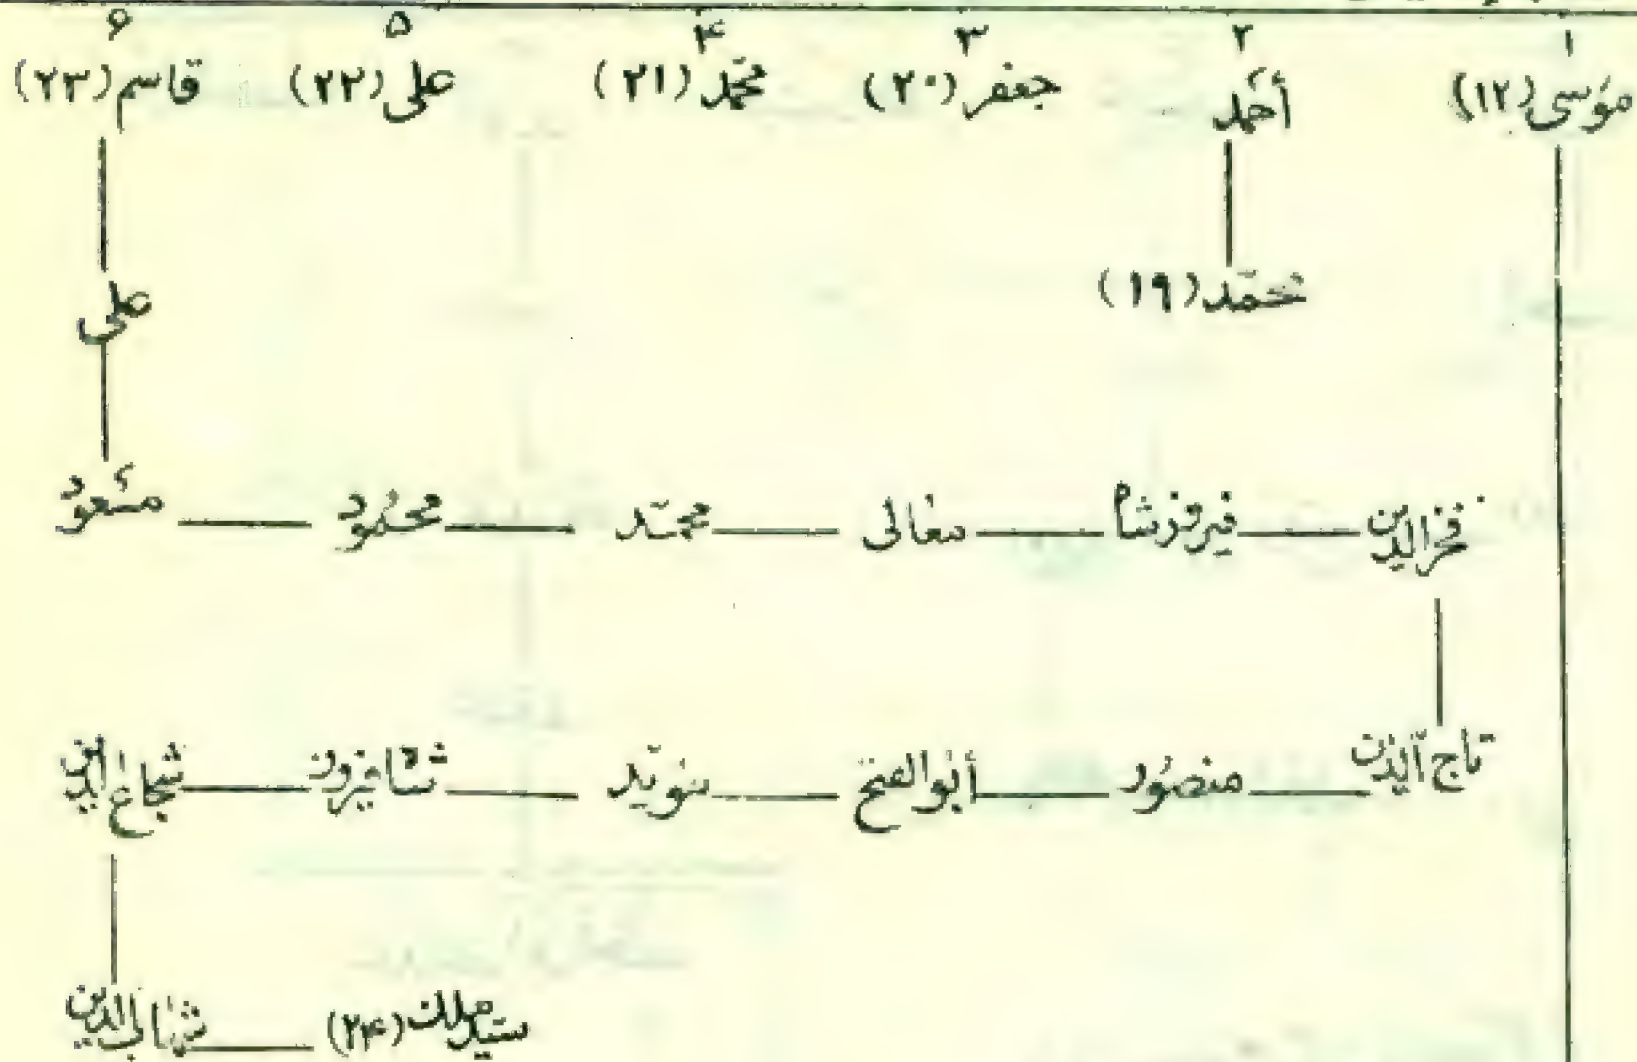 ۱ ۲ ۳ ۴ ۵ ۶
موسی (۱۲) أحمد جعفر (۲۰) محمّد (۲۱) علی (۲۲) قاسم (۲۳)
محمّد (۱۹) علی
فخرالدین فیروزشاه معالی محمّد محمُود مسعُود
تاج الدین منصُور أبوالفتح شجاع الدین
شهاب الدین (۲۴)